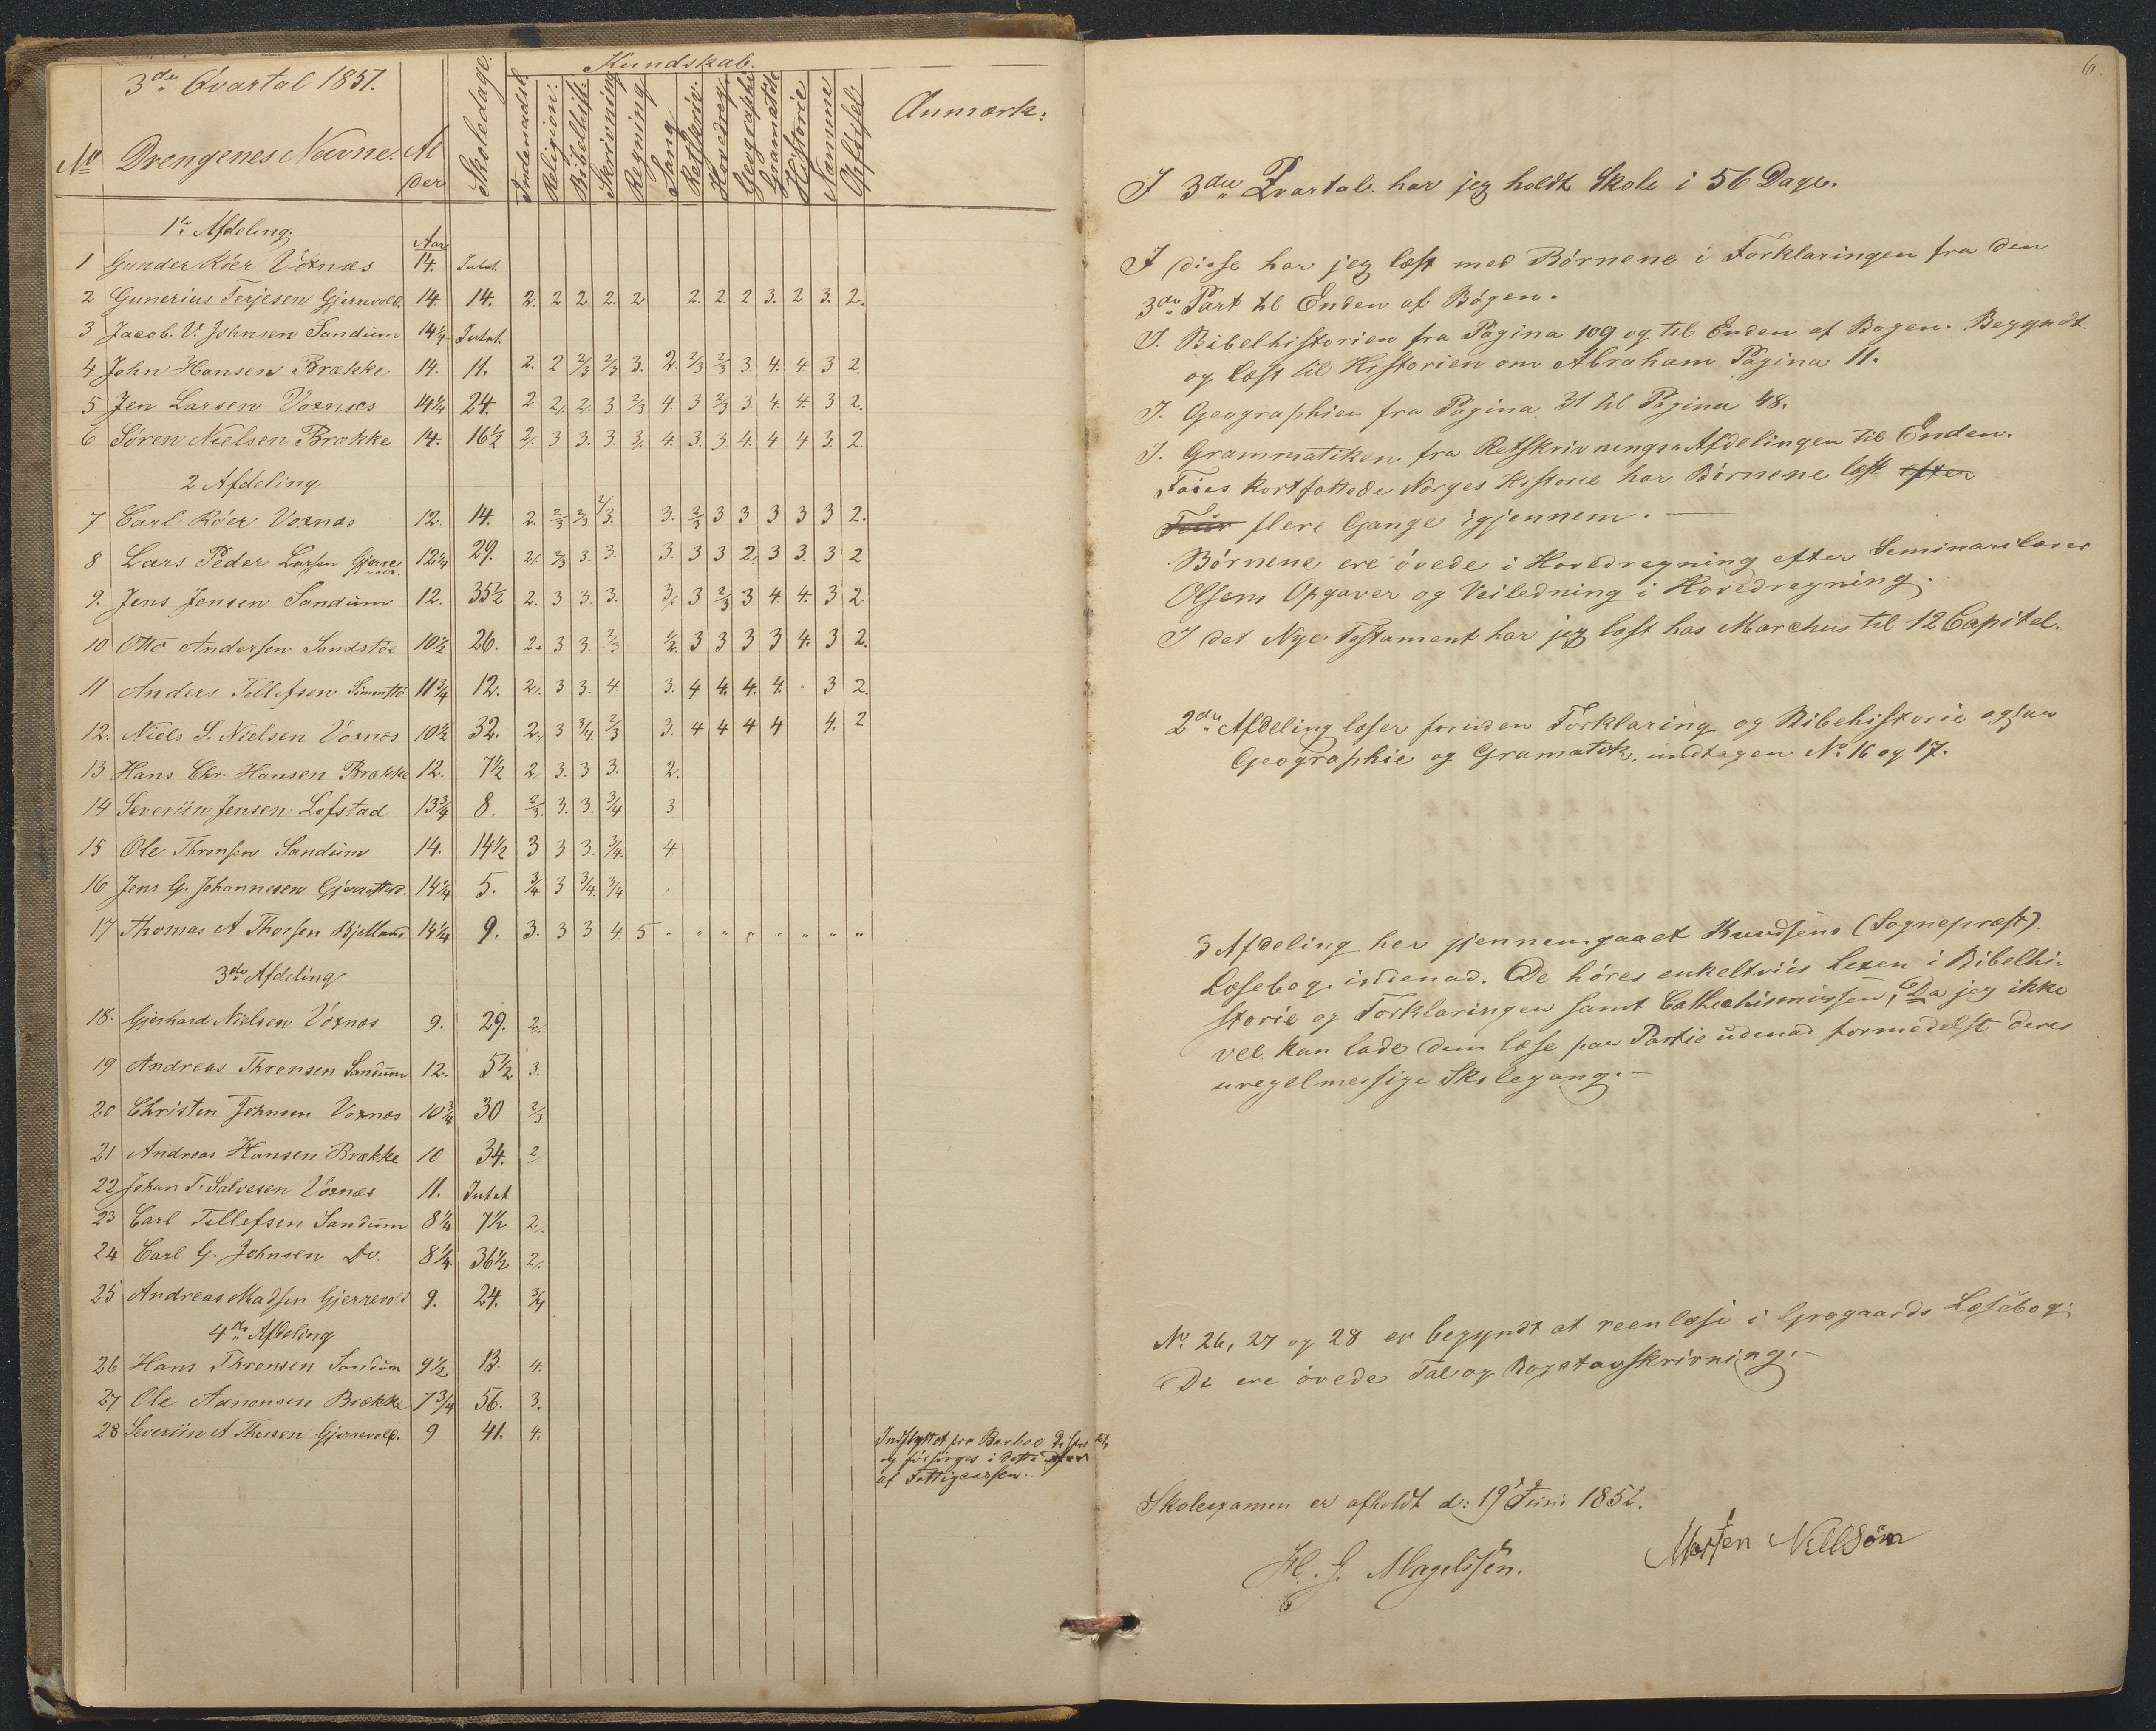 3die Qvartal 1851.
No Drengenes Navne. Alder Skoledage. Kundskab. Anmærk:
Indenadsl. Religion. Bibelhist. Skrivning Regning Sang Retskriv. Hovedreg. Geographi Gramatik Historie Nemme Opførsel
1te Afdeling.
Aar
1 Gunder Röer Voxnæs 14. Intet.
2 Gunerius Terjesen Gjerrevold. 14. 14. 2. 2 2 2. 2 2. 2. 2 3. 2. 3. 2.
3 Jacob. V. Johnsen Sandum 14 1/4 Intet.
4 John Hansen Brække 14. 11. 2. 2 2/3 2/3 3. 2. 2/3 2/3 3. 4. 4. 3 2.
5 Jen Larsen Voxnæs 14 1/4 24. 2. 2. 2. 3 2/3 4. 3 2/3 3. 4. 4. 3 2.
6 Søren Nielsen Brække 14. 16 1/2 2. 3 3. 3. 3. 4. 3. 3 4. 4 4 3. 2
2 Afdeling
7 Carl Röer Voxnæs 12. 14. 2. 2/3 2/3 2/3. 3. 2/3 3 3 3 3 3 2.
8 Lars Peder Larsen Gjerrevold. 12 1/4 29. 2. 2/3 3. 3. 3. 3 3 2. 3 3. 3 2
9. Jens Jensen Sandum 12. 35 1/2 2. 3 3. 3. 3. 3 2/3 3 4. 4. 3 2
10 Otto Andersen Sandstöe 10 1/2 26. 2. 3 3. 2/3 1/2. 3 3 3 3 4. 3 2.
11 Anders Tellefsen 11 3/4 12. 2. 3 3. 4. 3. 4 4. 4. 4. 3 2.
12. Niels S. Nielsen Voxnæs 10 1/2 32. 2. 3 3/4 2/3 3. 4 4 4 4 4. 2
13. Hans Chr. Hansen Brække 12. 7 1/2 2. 3. 3 3. 2.
14 Severiin Jensen Lofstad 13 3/4 8. 2/3. 3. 3. 3/4 3
15 Ole Thronsen Sandum 14. 14 1/2 3 3 3. 3/4. 4.
16 Jens G. Johannesen Gjerrestad. 14 1/4 5. 3/4 3 3/4. 3/4
17 Thomas A Thorsen Bjelland 14 1/4 9. 3. 3 3 4. 5 " " " " " " " "
3die Afdeling
18. Gjerhard Nielsen Voxnæs 9. 29. 2.
19 Andreas Thronsen Sandum 12. 5 1/2 3.
20 Christen Johnsen Voxnæs 10 3/4 30 2/3
21 Andreas Hansen Brække 10 34. 2.
22 Johan T. Salvesen Voxnæs 11. Intet
23 Carl Tellefsen Sandum 8 1/4 7 1/2 2.
24 Carl G. Johnsen Do. 8 1/4 36 1/2 2.
25 Andreas Madsen Gjerrevold 9. 24. 3/4
4de Afdeling
26 Hans Thronsen Sandum 9 1/2 13. 4.
27 Ole Aanonsen Brække 7 3/4 56. 3.
28 Severiin A Thorsen Gjerrevold. 9 41. 4.
Indflyttet fra Barboe
og forsørges i dette
af Fattigcassen.
6.
I 3die Qvartal har jeg holdt Skole i 56 Dage.
I disse har jeg læst med Börnene i Forklaringen fra den
3die Part til Enden af Bogen.
I. Bibelhistorien fra Pagina 109 og til Enden af Bogen. Begyndt
og læst til Historien om Abraham Pagina 11.
I. Geographien fra Pagina 31 til Pagina 48.
I. Grammatiken fra Retskrivnings-Afdelingen til Enden.
Faies kortfattede Norges Historie har Börnene læst efter
flere Gange igjennem.
Börnene ere övede i Hovedregning efter Seminarilærer
Olsens Opgaver og Veiledning i Hovedregning.
I det Nye Testament har jeg læst hos Marchus til 12 Capitel.
2den Afdeling læser foruden Forklaring og Bibehistorie ogsaa
Geographie og Gramatik, undtagen No. 16 og 17.
3 Afdeling har gjennemgaaet Knudsens (Sognepræst)
Læsebog indenad. De höres enkeltviis Lexen i Bibelhi-
storie og Forklaringen samt Cathechismussen, Da jeg ikke
vel kan lade dem læse paa Partie udenad formedelst deres
uregelmessige Skolegang.-
No. 26, 27 og 28 er begyndt at reenlæse i Grøgaards Læsebog.
De ere övede Tal og Bogstavskrivning.-
Skoleexamen er afholdt d: 19de Juni 1852.
H. G. Magelssen.
Morten Nillsön